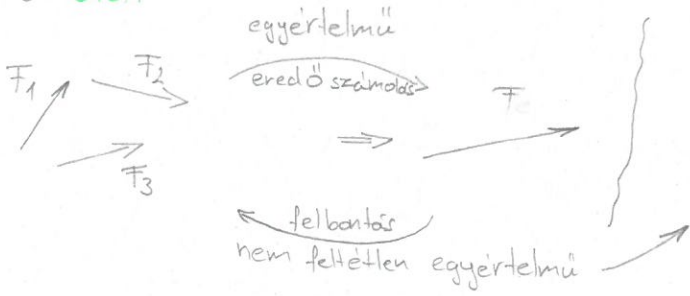 egyértelmű
F1
F2
eredő számolás
F
⇒
F3
felbontás
nem feltétlen egyértelmű